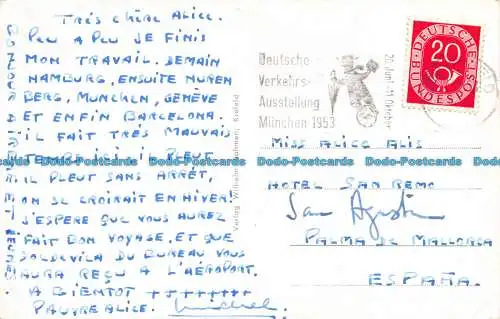 Très chère Alice.
Peu a peu je finis
mon travail. Demain
Hamburg, ensuite Nuren
berg, Munchen, Genève
et enfin Barcelona.
il fait très mauvais
temps ici. il pleut
il pleut sans arrêt,
on se croirait en hiver!
j'espère que vous aurez
fait bon voyage, et que
Soldevila du bureau vous
aura reçu a l'aéroport.
A bientot +++++++++
pauvre Alice. Michel
Verlag Wilhelm
Krefeld
Deutsche
Verkehrs-
Ausstellung
München 1953
20. Juni - 11. Oktober
DEUTSCHE
BUNDESPOST
20
Miss Alice Alis
Hotel San Remo
San Agustin
Palma de Mallorca
España.
Dodo-Postcards Dodo-Postcards Dodo-Postcards Dodo-Postcards